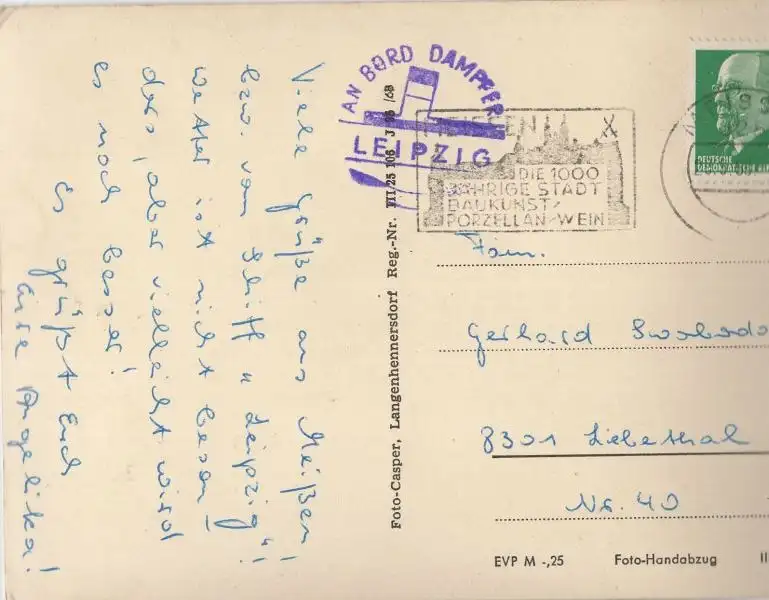 Viele Grüße aus Meißen!
bzw. vom Schiff "Leipzig"!
Wetter ist nicht beson-
ders, aber vielleicht wird
es noch besser!
Es grüßt Euch
Eure Angelika!
AN BORD DAMPFER
LEIPZIG
MEISSEN
DIE 1000
JÄHRIGE STADT
BAUKUNST/
PORZELLAN/WEIN
DEUTSCHE
Foto-Casper, Langenhennersdorf Reg.-Nr. III/25/106 J /68
Fam.
Gerhard Swoboda
8301 Liebethal
Nr. 40
EVP M -,25 Foto-Handabzug II